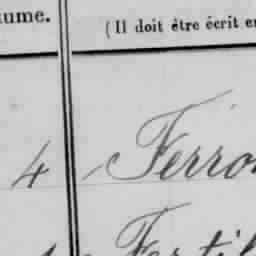 ume.
(Il doit être écrit e
4 Ferro